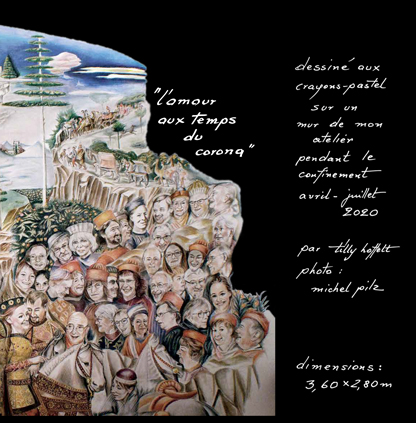 "l'amour
aux temps
du
corona"
dessiné aux
crayons-pastel
sur un
mur de mon
atelier
pendant le
confinement
avril - juillet
2020
par tilly hoffelt
photo :
michel pilz
dimensions :
3,60 x 2,80 m